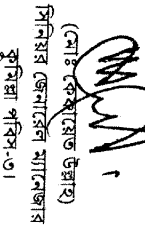 (মোঃ কেফায়েত উল্লাহ)
সিনিয়র জেনারেল ম্যানেজার
কুমিল্লা পবিস-৩।